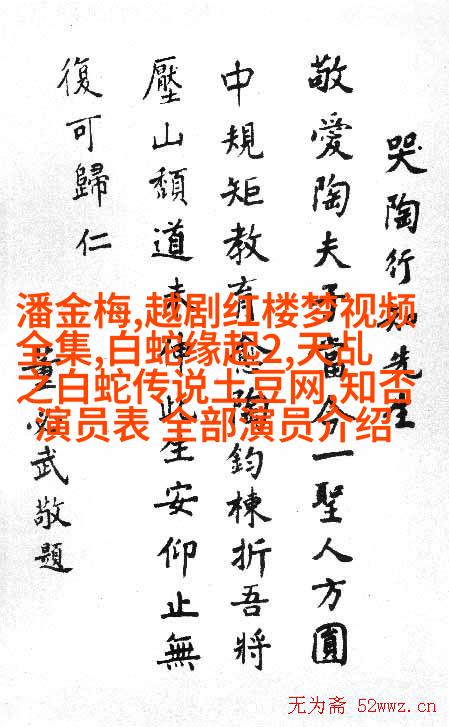 哭陶行知先生
敬愛陶夫子當今一聖人方圓
中規矩教育愈陶鈞棟折吾將
壓山頹道未伸此生安仰止無
復可歸仁
董必武敬題
潘金梅,越剧红楼梦视频
全集,白蛇缘起2,天乱
之白蛇传说土豆网,知否
演员表 全部演员介绍
无为斋 52wwz.cn